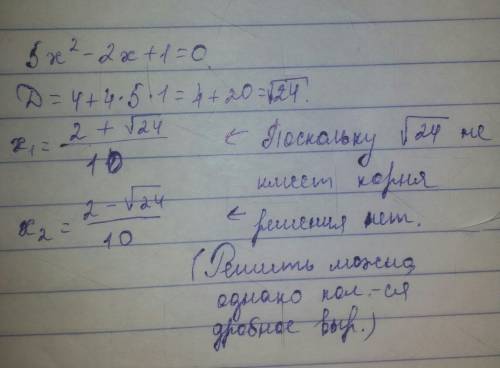 5x² - 2x + 1 = 0.
D = 4 + 4·5·1 = 4 + 20 = √24.
x₁ = (2 + √24)/10 ← Поскольку √24 не
имеет корня
x₂ = (2 - √24)/10 ← решения нет.
(Решить можно,
однако пол.-ся
дробное выр.)